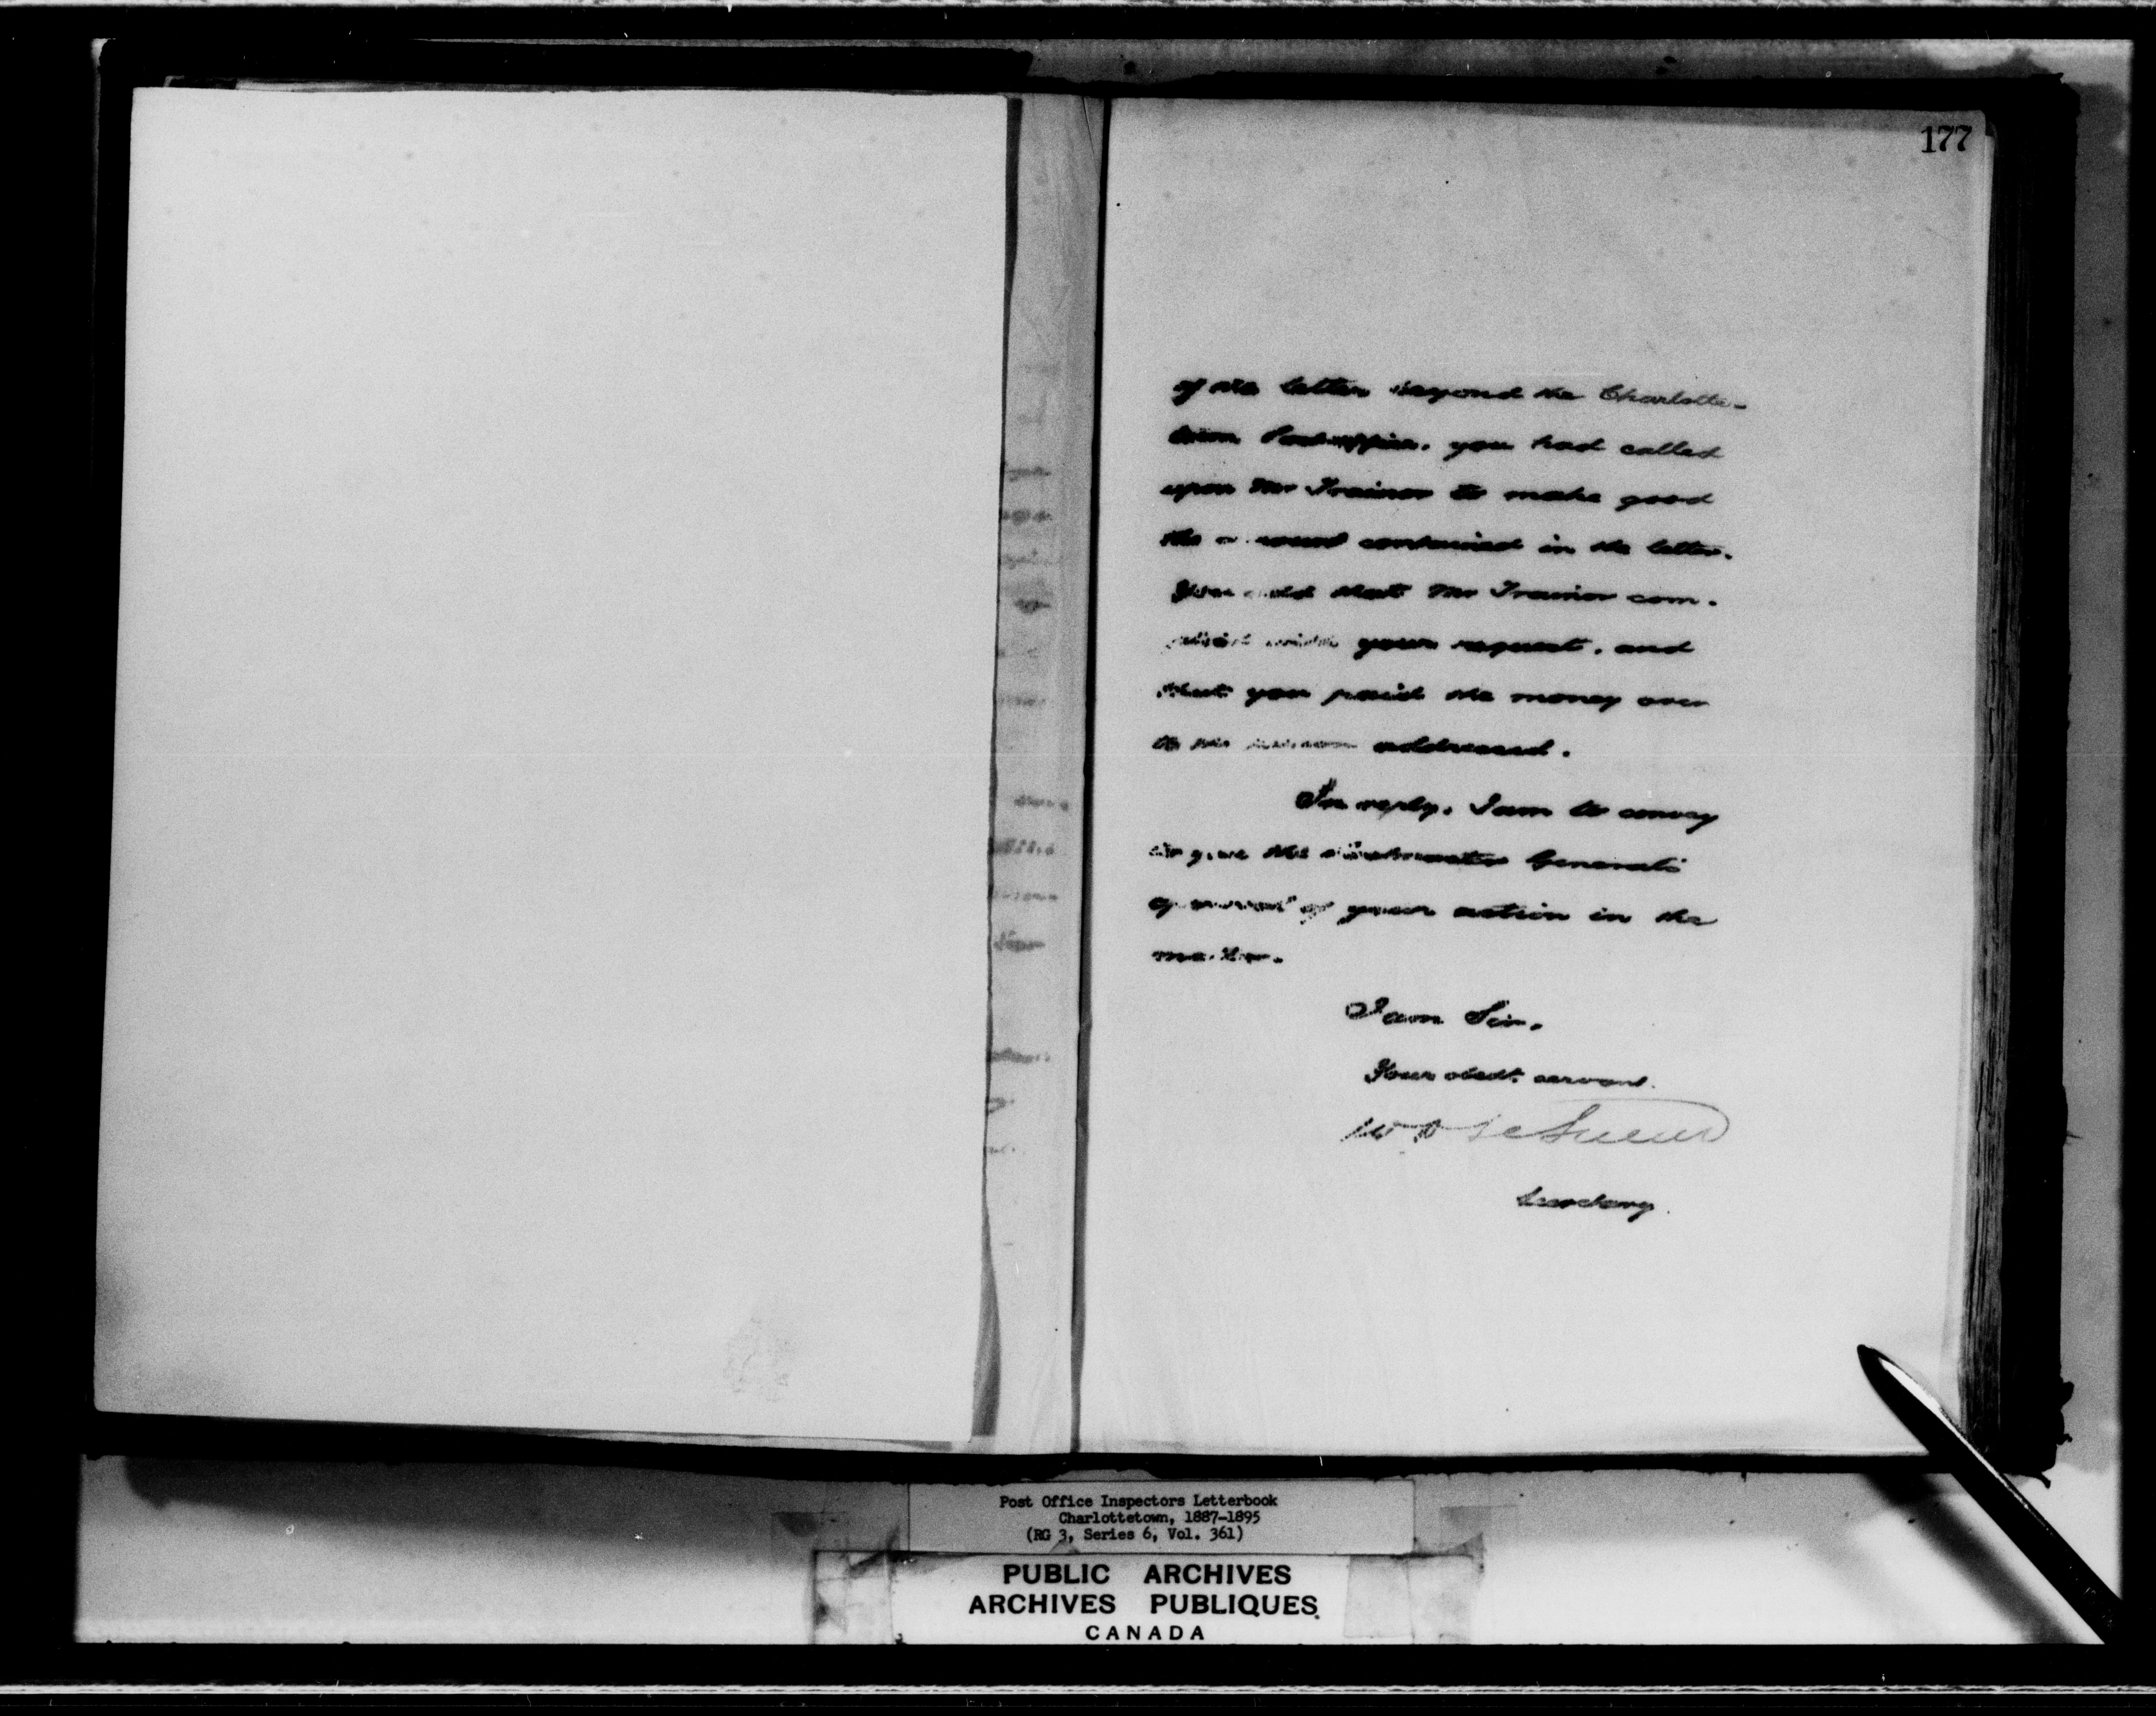 177
of the letter beyond the Charlotte-
town Post-office, you had called
upon Mr Trainor to make good
the amount contained in the letter.
You add that Mr Trainor com-
plied with your request, and
that you paid the money over
to the person addressed.
In reply, I am to convey
to you the Postmaster General's
approval of your action in the
matter.
I am Sir,
Your obedt. servant.
W D LeSueur
Secretary.
Post Office Inspectors Letterbook
Charlottetown, 1887-1895
(RG 3, Series 6, Vol. 361)
PUBLIC ARCHIVES
ARCHIVES PUBLIQUES
CANADA